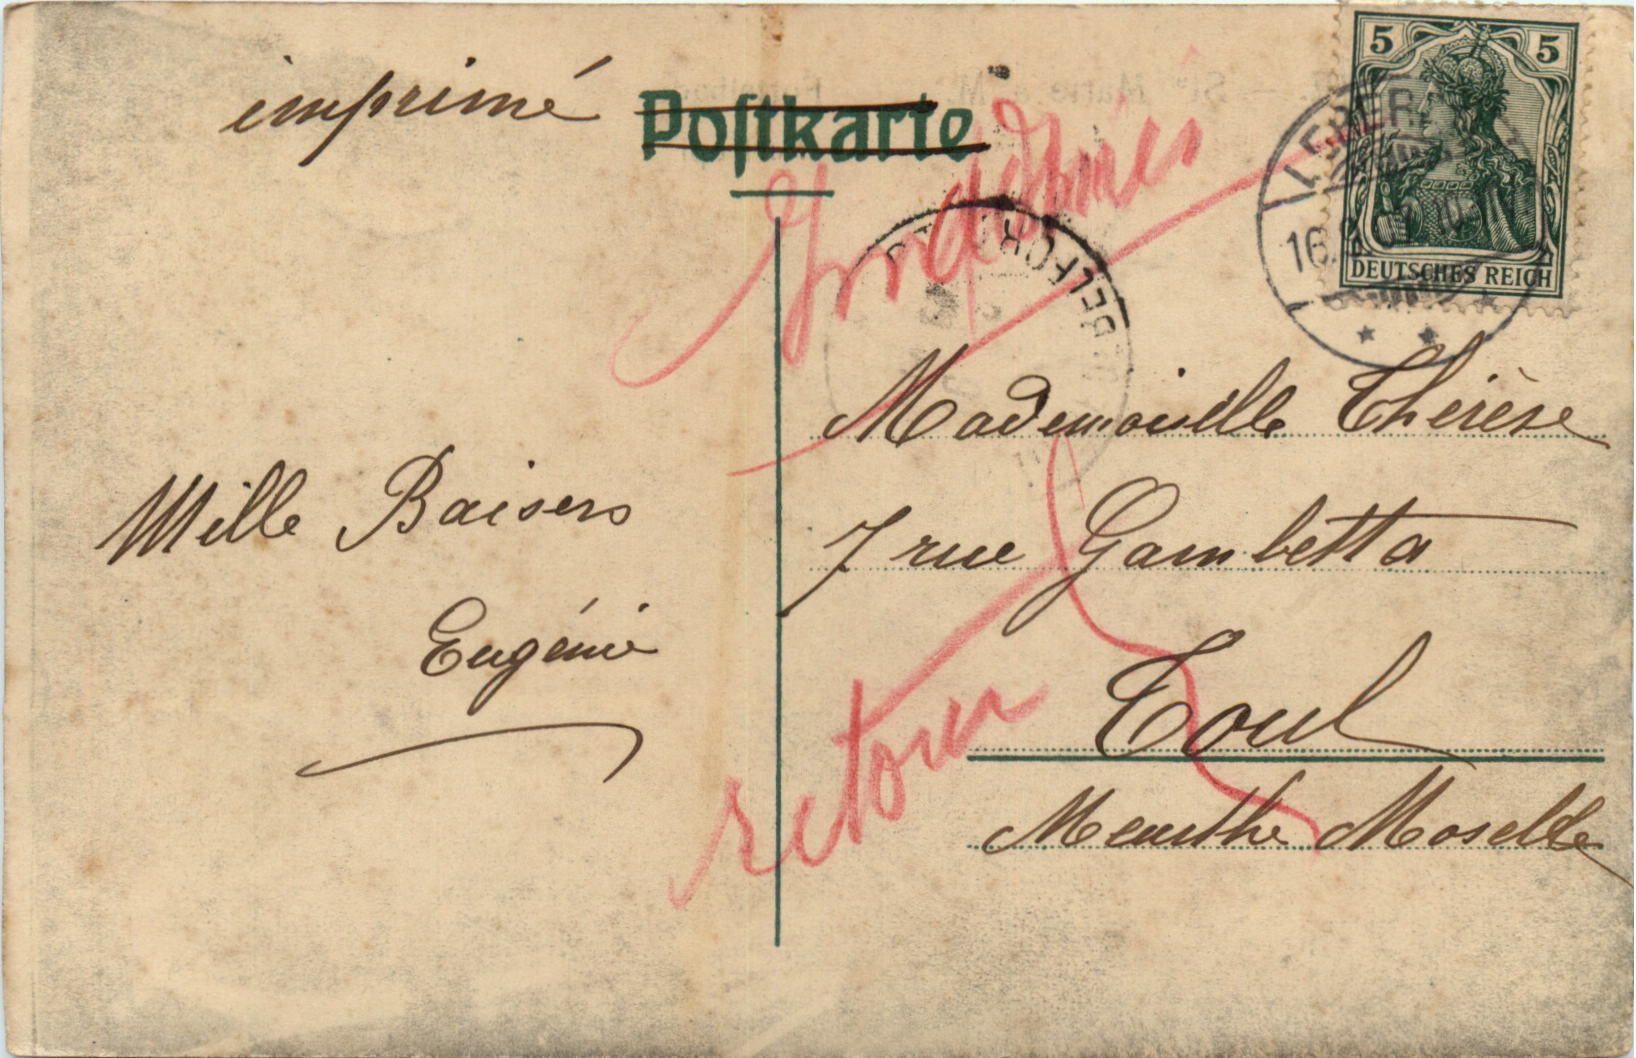 imprimé
Postkarte
5 5
DEUTSCHES REICH
LEBERAU
BELFORT
Mademoiselle Thérèse
7 rue Gambetta
Toul
Meurthe Moselle
Mille Baisers
Eugénie
retour